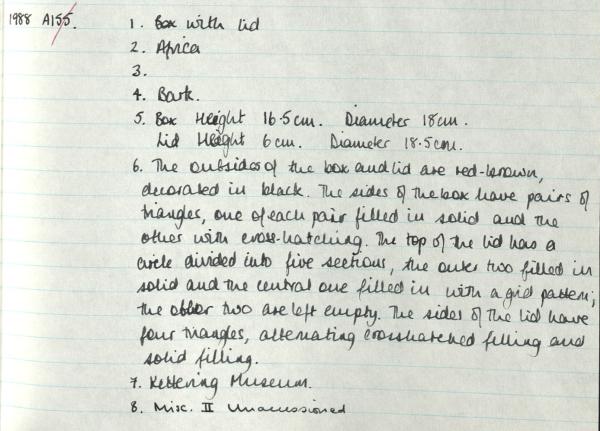 1988 A155. 1. Box with lid
2. Africa
3.
4. Bark.
5. Box Height 16.5cm. Diameter 18cm.
Lid Height 6cm. Diameter 18.5cm.
6. The outsides of the box and lid are red-brown,
decorated in black. The sides of the box have pairs of
triangles, one of each pair filled in solid and the
other with cross-hatching. The top of the lid has a
circle divided into five sections, the outer two filled in
solid and the central one filled in with a grid pattern;
the other two are left empty. The sides of the lid have
four triangles, alternating crosshatched filling and
solid filling.
7. Kettering Museum.
8. Misc. II Unaccessioned